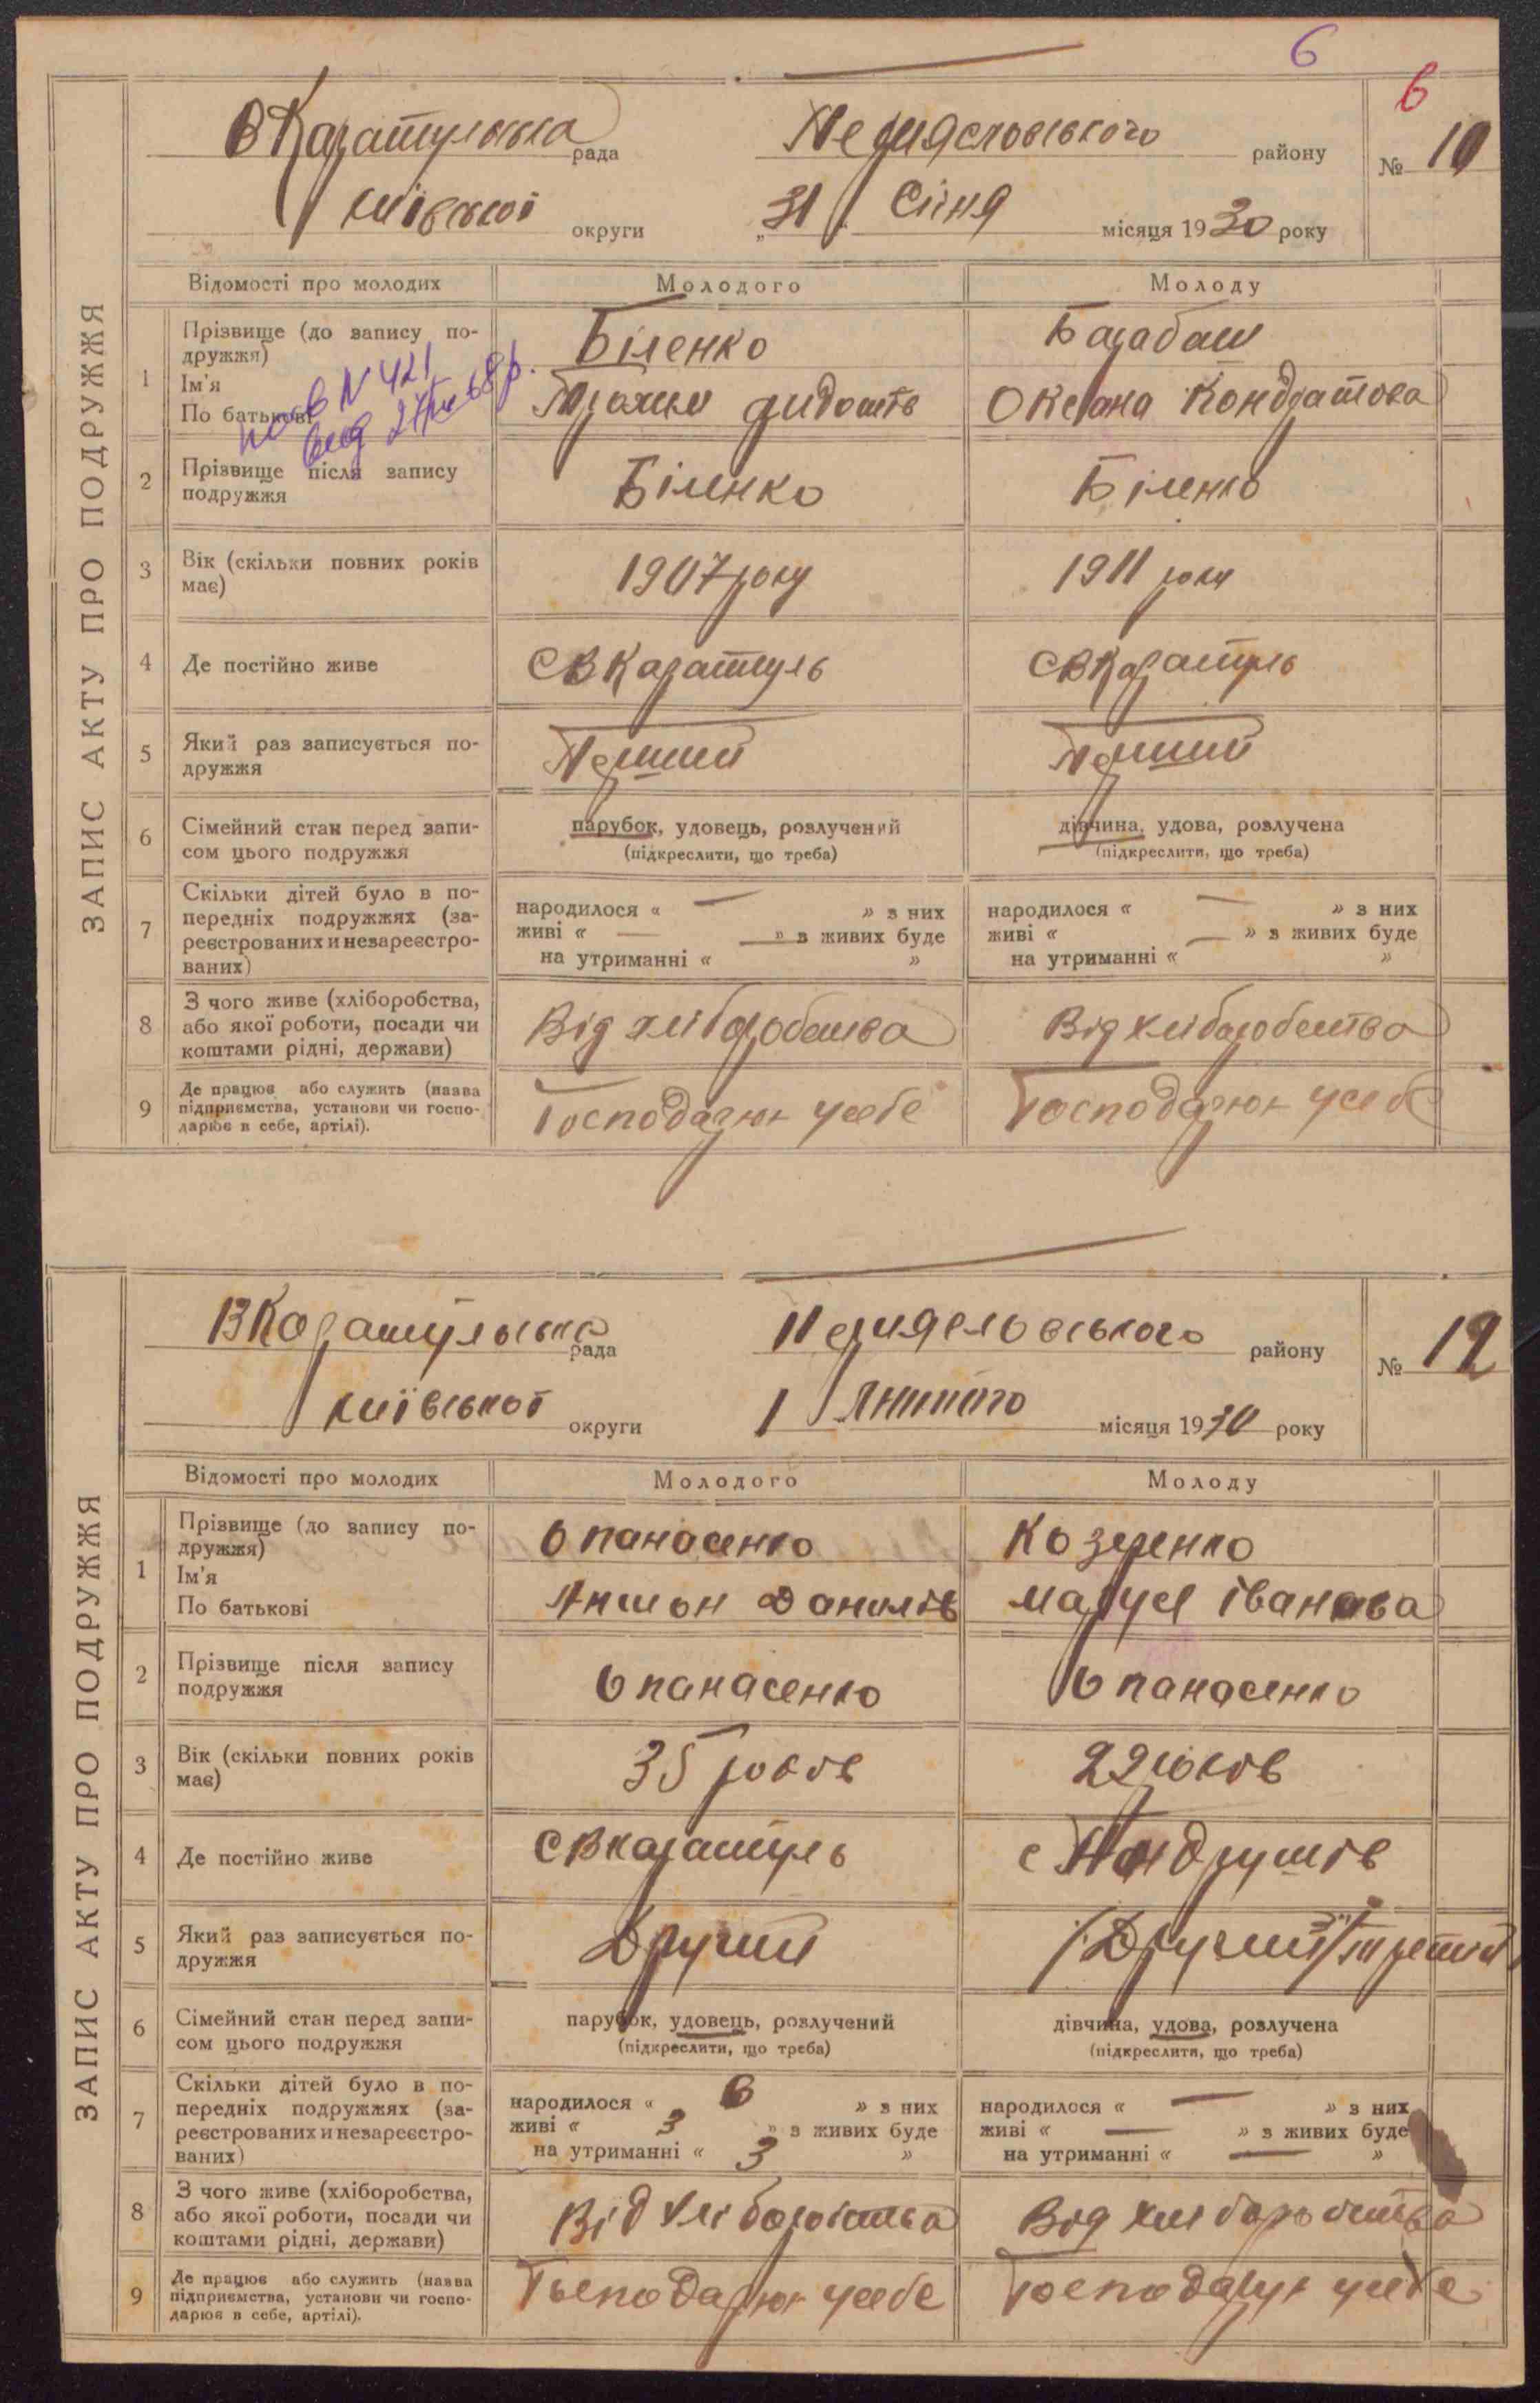 6
6
ЗАПИС АКТУ ПРО ПОДРУЖЖЯ
В Каратульська рада Переяславського району № 10
Київської округи „31" Січня місяця 1930 року
Відомості про молодих Молодого Молоду
1 Прізвище (до запису подружжя) Біленко Барабаш
Ім'я
По батькові Трохим Оксана Кондратова
N 421
2 Прізвище після запису подружжя Біленко Біленко
3 Вік (скільки повних років має) 1907 року 1911 року
4 Де постійно живе С В Каратуль С В Каратуль
5 Який раз записується подружжя Перший Перший
6 Сімейний стан перед записом цього подружжя парубок, удовець, розлучений дівчина, удова, розлучена
(підкреслити, що треба) (підкреслити, що треба)
7 Скільки дітей було в попередніх подружжях (зареєстрованих и незареєстрованих)
народилося « — » з них народилося « — » з них
живі « — » з живих буде живі « — » з живих буде
на утриманні « » на утриманні « »
8 З чого живе (хліборобства, або якої роботи, посади чи коштами рідні, держави) Від хліборобства Від хліборобства
9 Де працює або служить (назва підприємства, установи чи господарює в себе, артілі). Господарює у себе Господарює у себе
ЗАПИС АКТУ ПРО ПОДРУЖЖЯ
В Каратульська рада Переяславського району № 12
Київської округи 1 Лютого місяця 1930 року
Відомості про молодих Молодого Молоду
1 Прізвище (до запису подружжя) Опанасенко Козеренко
Ім'я
По батькові Антон Данилів Маруся Іванова
2 Прізвище після запису подружжя Опанасенко Опанасенко
3 Вік (скільки повних років має) 35 років 22 років
4 Де постійно живе С В Каратуль с
5 Який раз записується подружжя Другий (Другий) третій
6 Сімейний стан перед записом цього подружжя парубок, удовець, розлучений дівчина, удова, розлучена
(підкреслити, що треба) (підкреслити, що треба)
7 Скільки дітей було в попередніх подружжях (зареєстрованих и незареєстрованих)
народилося « 6 » з них народилося « — » з них
живі « 3 » з живих буде живі « — » з живих буде
на утриманні « 3 » на утриманні « — »
8 З чого живе (хліборобства, або якої роботи, посади чи коштами рідні, держави) Від хліборобства Від хліборобства
9 Де працює або служить (назва підприємства, установи чи господарює в себе, артілі). Господарює у себе Господарує у себе